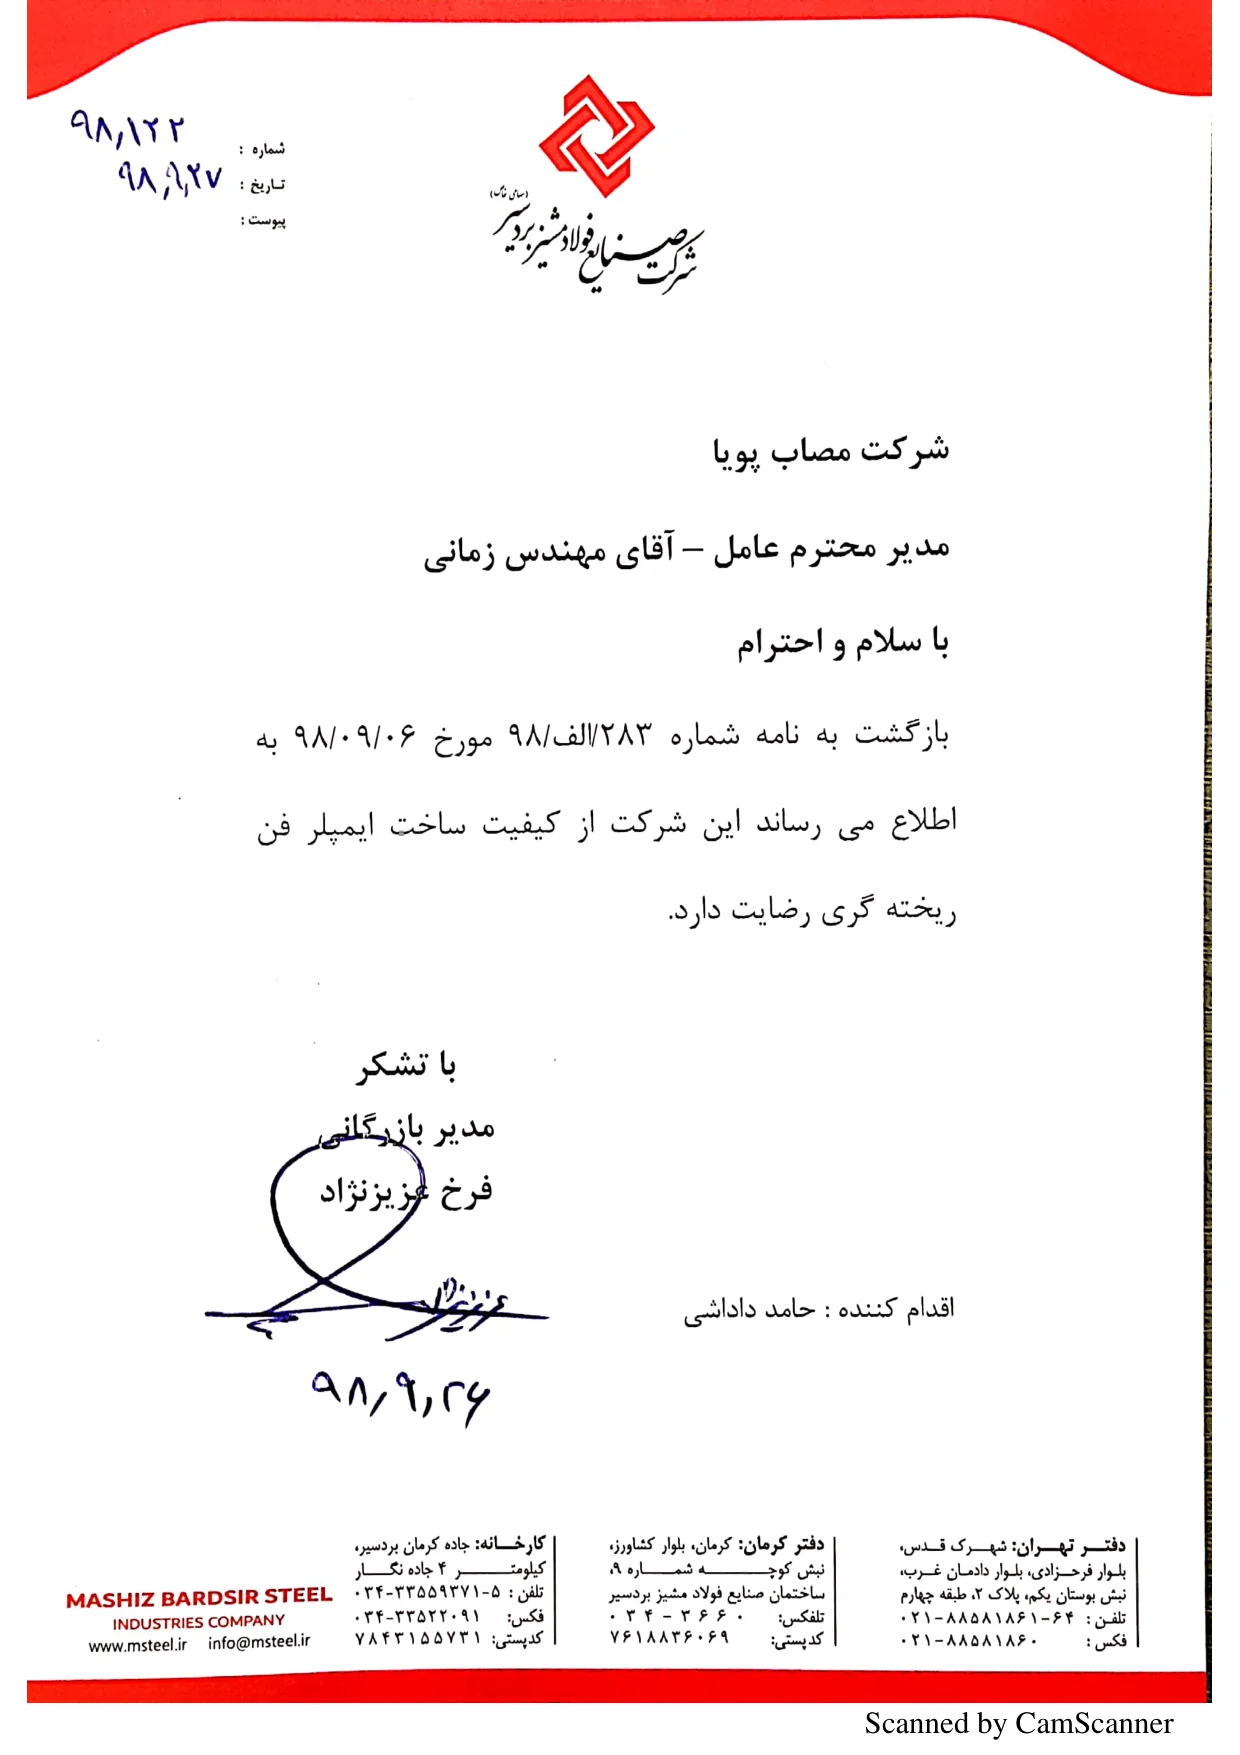 شماره : ۹۸,۱۲۲
تاریخ : ۹۸,۹,۲۷
پیوست :
(سهامی خاص)
شرکت صنایع فولاد مشیز بردسیر
شرکت مصاب پویا
مدیر محترم عامل – آقای مهندس زمانی
با سلام و احترام
بازگشت به نامه شماره ۲۸۳/الف/۹۸ مورخ ۹۸/۰۹/۰۶ به
اطلاع می رساند این شرکت از کیفیت ساخت ایمپلر فن
ریخته گری رضایت دارد.
با تشکر
مدیر بازرگانی
فرخ عزیزنژاد
عزیزنژاد
اقدام کننده : حامد داداشی
۹۸,۹,۲۶
دفتر تهران: شهرک قدس،
بلوار فرحزادی، بلوار دادمان غرب،
نبش بوستان یکم، پلاک ۲، طبقه چهارم
تلفن : ۰۲۱-۸۸۵۸۱۸۶۱-۶۴
فکس : ۰۲۱-۸۸۵۸۱۸۶۰
دفتر کرمان: کرمان، بلوار کشاورز،
نبش کوچه شماره ۹،
ساختمان صنایع فولاد مشیز بردسیر
تلفکس: ۰۳۴-۳۶۶۰
کدپستی: ۷۶۱۸۸۳۶۰۶۹
کارخانه: جاده کرمان بردسیر،
کیلومتر ۴ جاده نگار
تلفن : ۰۳۴-۳۳۵۵۹۳۷۱-۵
فکس: ۰۳۴-۳۳۵۲۲۰۹۱
کدپستی: ۷۸۴۳۱۵۵۷۳۱
MASHIZ BARDSIR STEEL
INDUSTRIES COMPANY
www.msteel.ir info@msteel.ir
Scanned by CamScanner